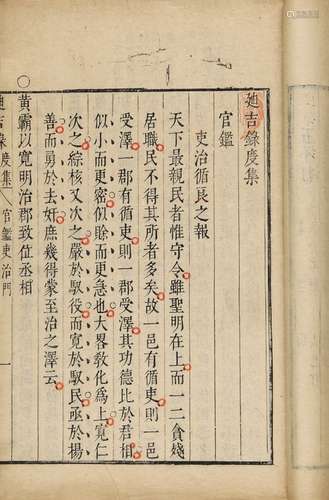 迪吉錄度集
官鑑
吏治循良之報
天下最親民者惟守令雖聖明在上而一二貪殘
居職民不得其所者多矣故一邑有循吏則一邑
受澤一郡有循吏則一郡受澤其功德比於君相
似小而更密似賒而更急也大畧敎化爲上寬仁
次之綜核又次之嚴於馭役而寛於馭民亟於揚
善而勇於去奸庶幾得蒙至治之澤云
○黃霸以寛明治郡致位丞相
迪吉錄度集 官鑑吏治門 一